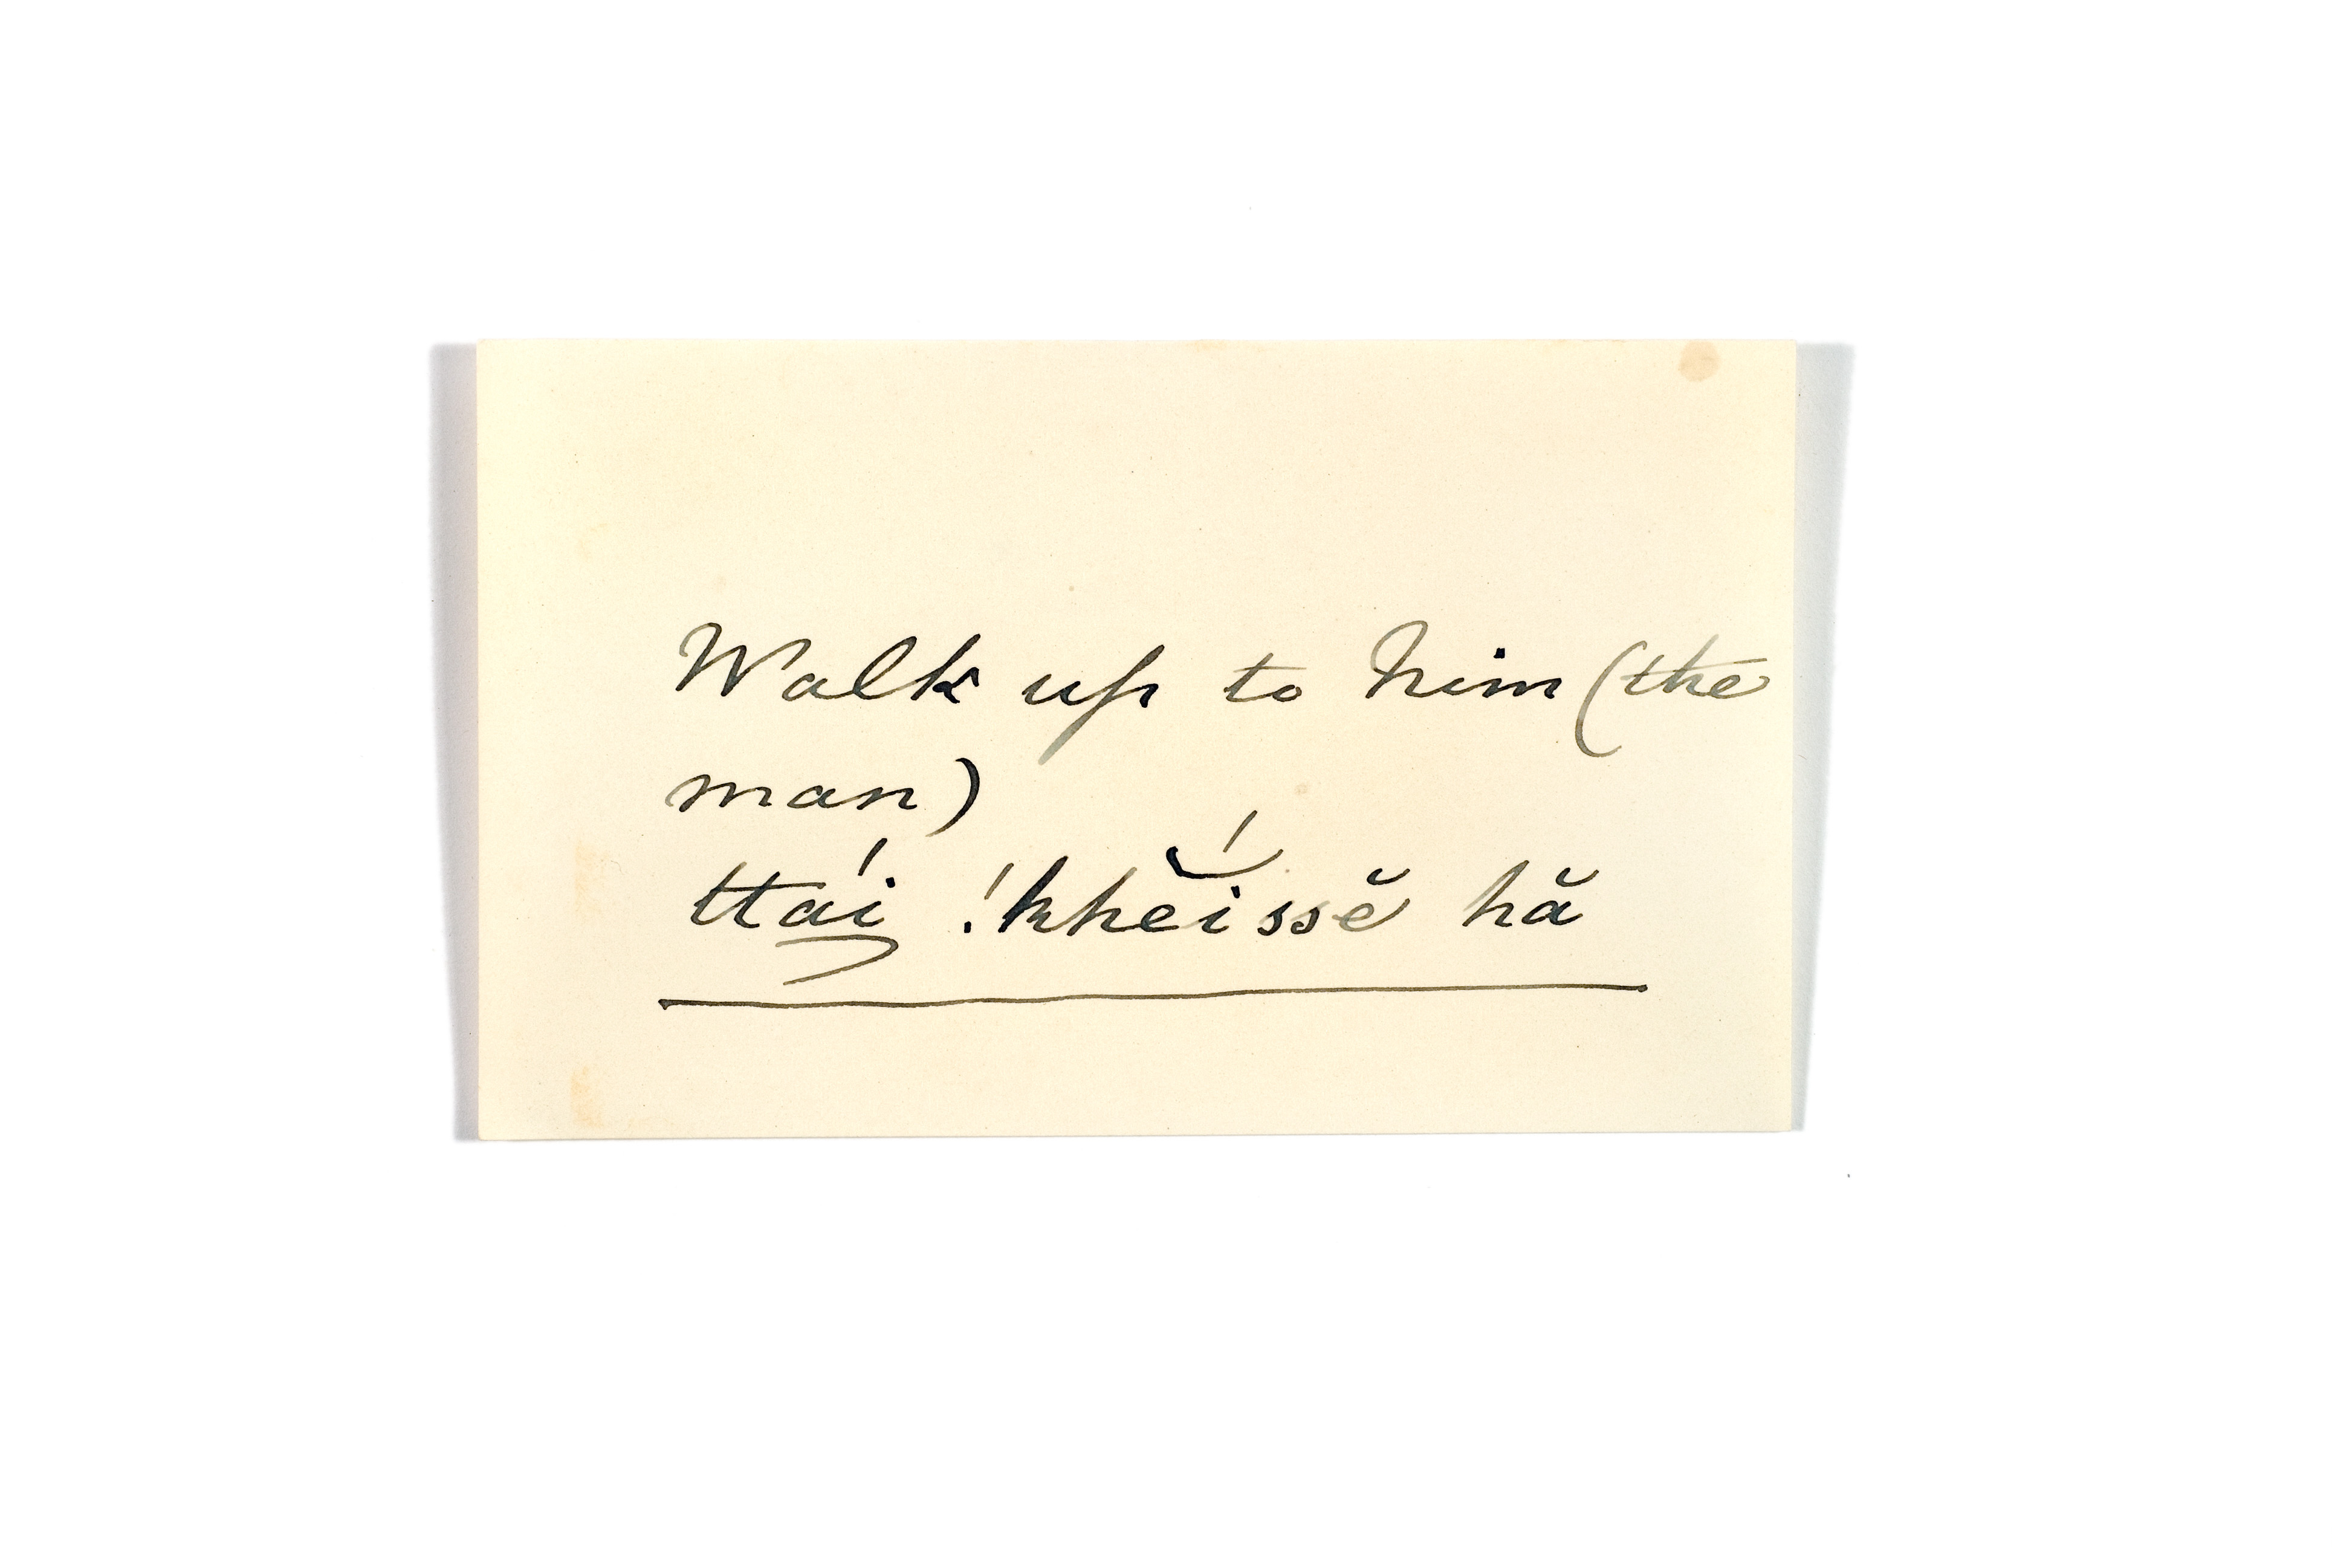 Walk up to him (the
man)
ttaí̗ !khĕ́issĕ hă